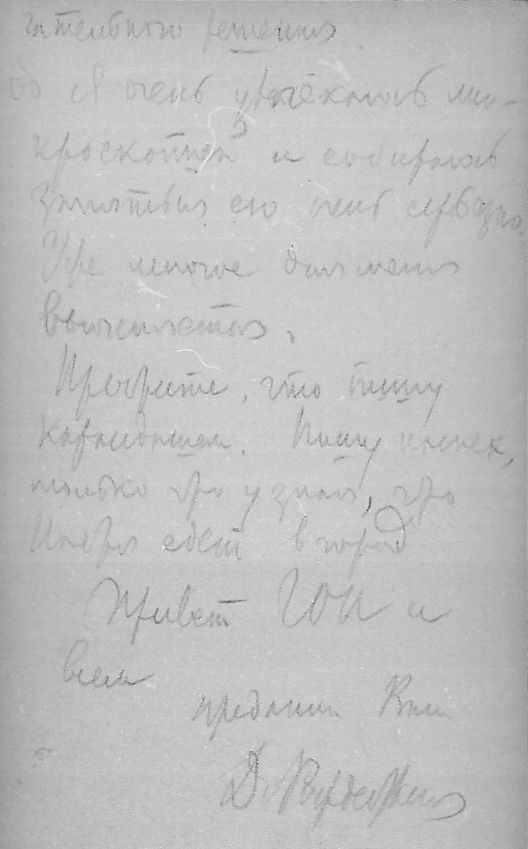 чательного решения
Я очень увлекаюсь ми-
кроскопией и собираюсь
заняться ею очень серьезно.
Уже многое для меня
выясняется.
Простите, что пишу
карандашом. Пишу наспех,
только что узнал, что
едет в город
Привет ГОИ и
всем
преданный Вам
Д. Рождественский